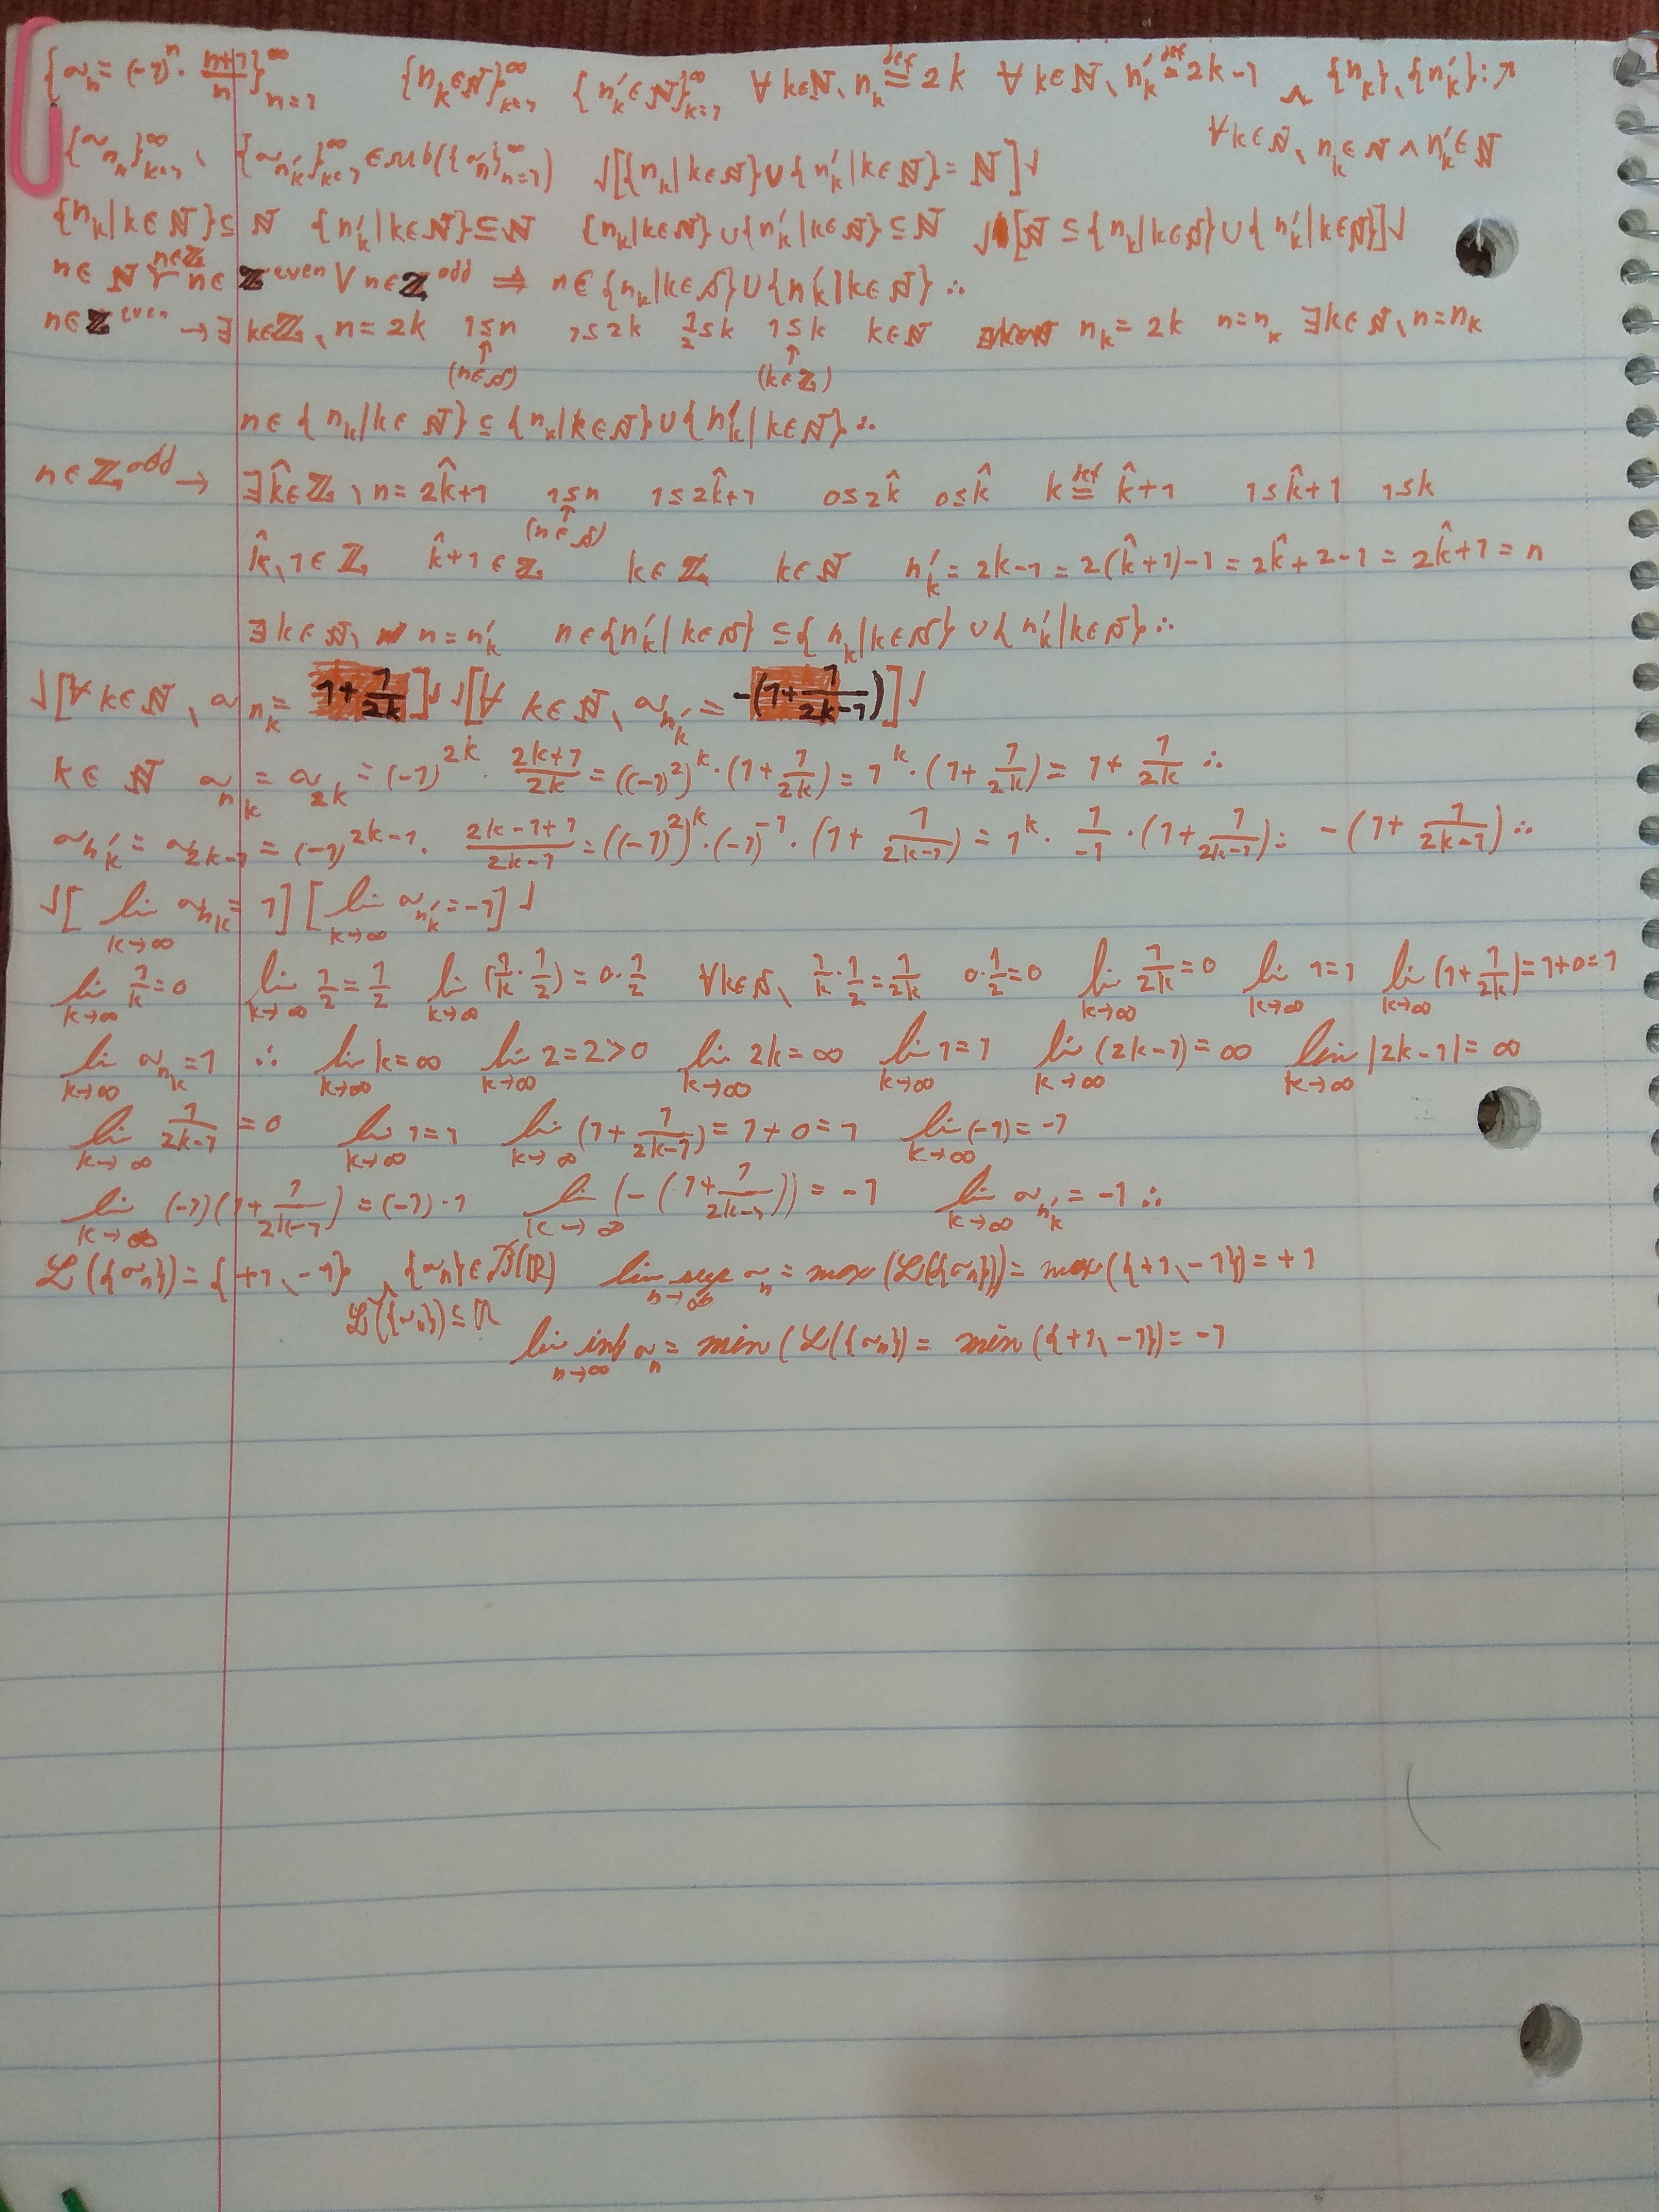 {aₙ = (-1)ⁿ · (n+1)/n}_{n=1}^∞ {n_k ∈ ℕ}_{k=1}^∞ {n'_k ∈ ℕ}_{k=1}^∞ ∀ k∈ℕ, n_k ≝ 2k ∀ k∈ℕ, n'_k ≝ 2k-1 ∧ {n_k}, {n'_k} : ↗
∀ k∈ℕ, n_k ∈ ℕ ∧ n'_k ∈ ℕ
{a_{n_k}}_{k=1}^∞, {a_{n'_k}}_{k=1}^∞ ∈ sub({aₙ}_{n=1}^∞) √[{n_k | k∈ℕ} ∪ {n'_k | k∈ℕ} = ℕ]√
{n_k | k∈ℕ} ⊆ ℕ {n'_k | k∈ℕ} ⊆ ℕ {n_k | k∈ℕ} ∪ {n'_k | k∈ℕ} ⊆ ℕ √[ℕ ⊆ {n_k | k∈ℕ} ∪ {n'_k | k∈ℕ}]√
n∈ℕ n∈ℤ n∈ℤ^even ∨ n∈ℤ^odd ⇒ n∈{n_k | k∈ℕ} ∪ {n'_k | k∈ℕ} ∴
n∈ℤ^even → ∃ k∈ℤ, n = 2k 1≤n 1≤2k 1/2≤k 1≤k k∈ℕ n_k = 2k n = n_k ∃ k∈ℕ, n = n_k
↑ ↑
(n∈ℕ) (k∈ℤ)
n ∈ {n_k | k∈ℕ} ⊆ {n_k | k∈ℕ} ∪ {n'_k | k∈ℕ} ∴
n∈ℤ^odd → ∃ k̂∈ℤ, n = 2k̂+1 1≤n 1≤2k̂+1 0≤2k̂ 0≤k̂ k ≝ k̂+1 1≤k̂+1 1≤k
↑
(n∈ℕ)
k̂, 1∈ℤ k̂+1∈ℤ k∈ℤ k∈ℕ n'_k = 2k-1 = 2(k̂+1)-1 = 2k̂+2-1 = 2k̂+1 = n
∃ k∈ℕ, n = n'_k n∈{n'_k | k∈ℕ} ⊆ {n_k | k∈ℕ} ∪ {n'_k | k∈ℕ} ∴
√[∀ k∈ℕ, a_{n_k} = 1+1/(2k)]√ √[∀ k∈ℕ, a_{n'_k} = -(1+1/(2k-1))]√
k∈ℕ a_{n_k} = a_{2k} = (-1)^{2k} · (2k+1)/(2k) = ((-1)²)^k · (1+1/(2k)) = 1^k · (1+1/(2k)) = 1+1/(2k) ∴
a_{n'_k} = a_{2k-1} = (-1)^{2k-1} · (2k-1+1)/(2k-1) = ((-1)²)^k · (-1)^{-1} · (1+1/(2k-1)) = 1^k · 1/(-1) · (1+1/(2k-1)) = -(1+1/(2k-1)) ∴
√[lim_{k→∞} a_{n_k} = 1] [lim_{k→∞} a_{n'_k} = -1]√
lim_{k→∞} 1/k = 0 lim_{k→∞} 1/2 = 1/2 lim_{k→∞} (1/k · 1/2) = 0 · 1/2 ∀ k∈ℕ, 1/k · 1/2 = 1/(2k) 0 · 1/2 = 0 lim_{k→∞} 1/(2k) = 0 lim_{k→∞} 1 = 1 lim_{k→∞} (1+1/(2k)) = 1+0 = 1
lim_{k→∞} a_{n_k} = 1 ∴ lim_{k→∞} k = ∞ lim_{k→∞} 2 = 2 > 0 lim_{k→∞} 2k = ∞ lim_{k→∞} 1 = 1 lim_{k→∞} (2k-1) = ∞ lim_{k→∞} |2k-1| = ∞
lim_{k→∞} 1/(2k-1) = 0 lim_{k→∞} 1 = 1 lim_{k→∞} (1+1/(2k-1)) = 1+0 = 1 lim_{k→∞} (-1) = -1
lim_{k→∞} (-1)(1+1/(2k-1)) = (-1)·1 lim_{k→∞} (-(1+1/(2k-1))) = -1 lim_{k→∞} a_{n'_k} = -1 ∴
ℒ({aₙ}) = {+1, -1} {aₙ} ∈ ℬ(ℝ) lim sup_{n→∞} aₙ = max(ℒ({aₙ})) = max({+1, -1}) = +1
ℒ({aₙ}) ⊆ ℝ
lim inf_{n→∞} aₙ = min(ℒ({aₙ}) = min({+1, -1}) = -1